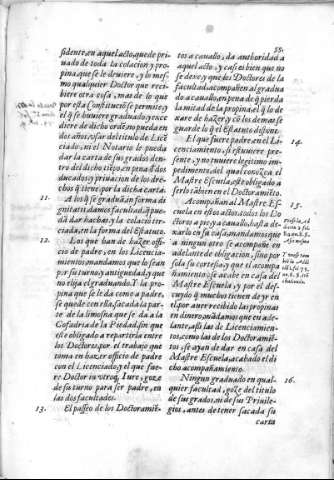 55.
sidente, en aquel acto, quede pri-
uado de toda la colacion y pro-
pina, que se le deuiere, y lo mes-
mo qualquier Doctor que reci-
biere otra cosa, mas de lo que
por esta Constitució se permite, y
el q̃ se huuiere graduado, y exce
diere de dicho orden, no pueda en
dos años, vsar del titulo de Licé
ciado, ni el Notario le pueda
dar la carta de sus grados den-
tro del dicho tiẽpo, en pena d̃ dos
ducados, y priuacion de los dre-
chos q̃ tiene, por la dicha carta.
11. A los q̃ se gradua, en forma di
gnitatis, damos facultad, q̃ pue-
dã dar hachas, y la colacion tri-
ciada, en la forma del Estatuto.
12. Los que han de hazer offi-
cio de padre, en los Licencia-
mientos, mandamos que lo sean
por su turno, y antiguedad, y que
no elija el graduando. Y la pro-
pina que se le da como a padre,
se quede con ella, sacada la par-
te de la limosna que se da a la
Cofadria de la Piedad, sin que
este obligado a repartirla entre
los Doctores, por el trabajo que
toma en hazer officio de padre
con el Licenciado, y el que fue-
re Doctor in vtroq; Iure, goze
de su turno para ser padre, en
las dos facultades.
13. El passeo de los Doctoramiẽ-
tos a cauallo, da authoridad a
aquel acto, y casi es bien que no
se dexe, y que los Doctores de la
facultad, acompañen al gradua
do a cauallo, en pena de q̃ pierda
la mitad de la propina, el q̃ lo de
xare de hazer, y cõ los demas se
guarde lo q̃ el Estatuto dispone.
14. El que fuere padre, en el Li-
cenciamiento, si estuuiere pre-
sente, y no tuuiere legitimo im-
pedimento, del qual conozca el
Maestre Escuela, este obligado a
serlo tãbien en el Doctoramiẽto.
15. Acompañan al Maestre Es-
cuela en estos actos, todos los Do
ctores a pie, y a cauallo, hasta de-
xarlo en su casa, mandamos que
a ninguno otro se acompañe en
adelante de obligacion, sino por
sola su cortesia, y que el acompa
ñamiento se acabe en casa del
Maestre Escuela, y por el des-
cuydo q̃ muchos tienen de yr en
el, por auer recebido las propinas
en dinero, mãdamos que en ade-
lante, assi las de Licenciamien-
tos, como las de los Doctoramiẽ-
tos, se ayan de dar en casa del
Maestre Escuela, acabado el di
cho acompañamiento.
16. Ningun graduado en qual-
quier facultad, goze del titulo
de sus grados, ni de sus Priuile-
gios, antes de tener sacada su
carta